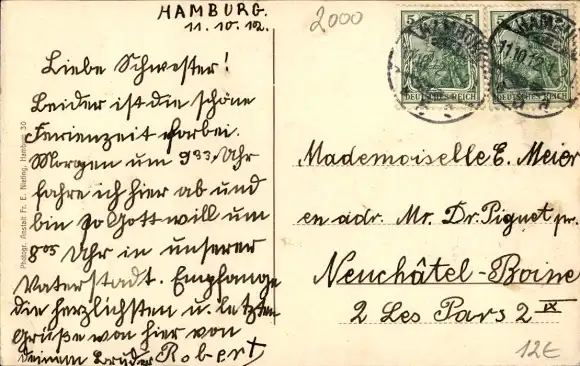 HAMBURG.
11. 10. 12.
2000
Liebe Schwester!
Leider ist die schöne
Ferienzeit vorbei.
Morgen um 9³³ Uhr
fahre ich hier ab und
bin so Gott will um
8⁰⁵ Uhr in unserer
Vaterstadt. Empfange
die herzlichsten u. letzten
Grüße von hier von
deinem Bruder Robert
Photogr. Anstalt Fr. E. Niering, Hamburg 30
5 5
DEUTSCHES REICH
5
DEUTSCHES REICH
HAMBURG
11.10.12
Mademoiselle E. Meier
en adr. Mr. Dr. Piguet pr.
Neuchâtel-Boine
2 Les Pars 2 IX
12€